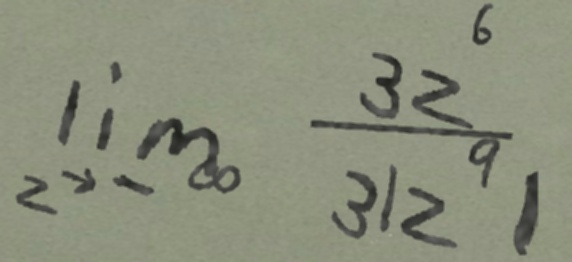 \lim_{z \to -\infty} \frac{3z^6}{31z^9 1}